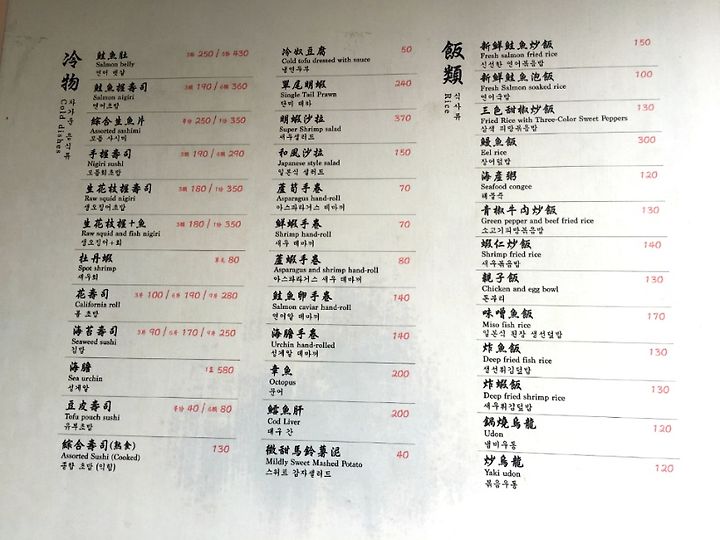 冷物
차가운 음식류
Cold dishes
鮭魚肚 250/ 430
Salmon belly
연어 뱃살
鮭魚握壽司 3顆 190/6顆 360
Salmon nigiri
연어초밥
綜合生魚片 250/ 350
Assorted sashimi
모듬 사시미
手握壽司 190/ 290
Nigiri sushi
모듬회초밥
生花枝握壽司 180/ 350
Raw squid nigiri
생오징어초밥
生花枝握+魚 180/ 350
Raw squid and fish nigiri
생오징어+회
牡丹蝦 80
Spot shrimp
새우회
花壽司 100/ 190/ 280
California roll
롤 초밥
海苔壽司 90/ 170/ 250
Seaweed sushi
김밥
海膽 580
Sea urchin
성게알
豆皮壽司 40/ 80
Tofu pouch sushi
유부초밥
綜合壽司(熟食) 130
Assorted Sushi (Cooked)
종합 초밥 (익힘)
冷奴豆腐 50
Cold tofu dressed with sauce
냉연두부
單尾明蝦 240
Single Tail Prawn
단미 대하
明蝦沙拉 370
Super Shrimp salad
새우샐러드
和風沙拉 150
Japanese style salad
일본식 샐러드
蘆筍手卷 70
Asparagus hand-roll
아스파라거스 데마끼
鮮蝦手卷 70
Shrimp hand-roll
새우 데마끼
蘆蝦手卷 80
Asparagus and shrimp hand-roll
아스파라거스 새우 데마끼
鮭魚卵手卷 140
Salmon caviar hand-roll
연어알 데마끼
海膽手卷 140
Urchin hand-rolled
성게알 데마끼
章魚 200
Octopus
문어
鱈魚肝 200
Cod Liver
대구 간
微甜馬鈴薯泥 40
Mildly Sweet Mashed Potato
스위트 감자샐러드
飯類
식사류
Rice
新鮮鮭魚炒飯 150
Fresh salmon fried rice
신선한 연어볶음밥
新鮮鮭魚泡飯 100
Fresh Salmon soaked rice
연어국밥
三色甜椒炒飯 130
Fried Rice with Three-Color Sweet Peppers
삼색 피망볶음밥
鰻魚飯 300
Eel rice
장어덮밥
海產粥 120
Seafood congee
해물죽
青椒牛肉炒飯 130
Green pepper and beef fried rice
소고기피망볶음밥
蝦仁炒飯 140
Shrimp fried rice
새우볶음밥
親子飯 130
Chicken and egg bowl
돈부리
味噌魚飯 170
Miso fish rice
일본식 된장 생선덮밥
炸魚飯 130
Deep fried fish rice
생선튀김덮밥
炸蝦飯 130
Deep fried shrimp rice
새우튀김덮밥
鍋燒烏龍 120
Udon
냄비우동
炒烏龍 120
Yaki udon
볶음우동